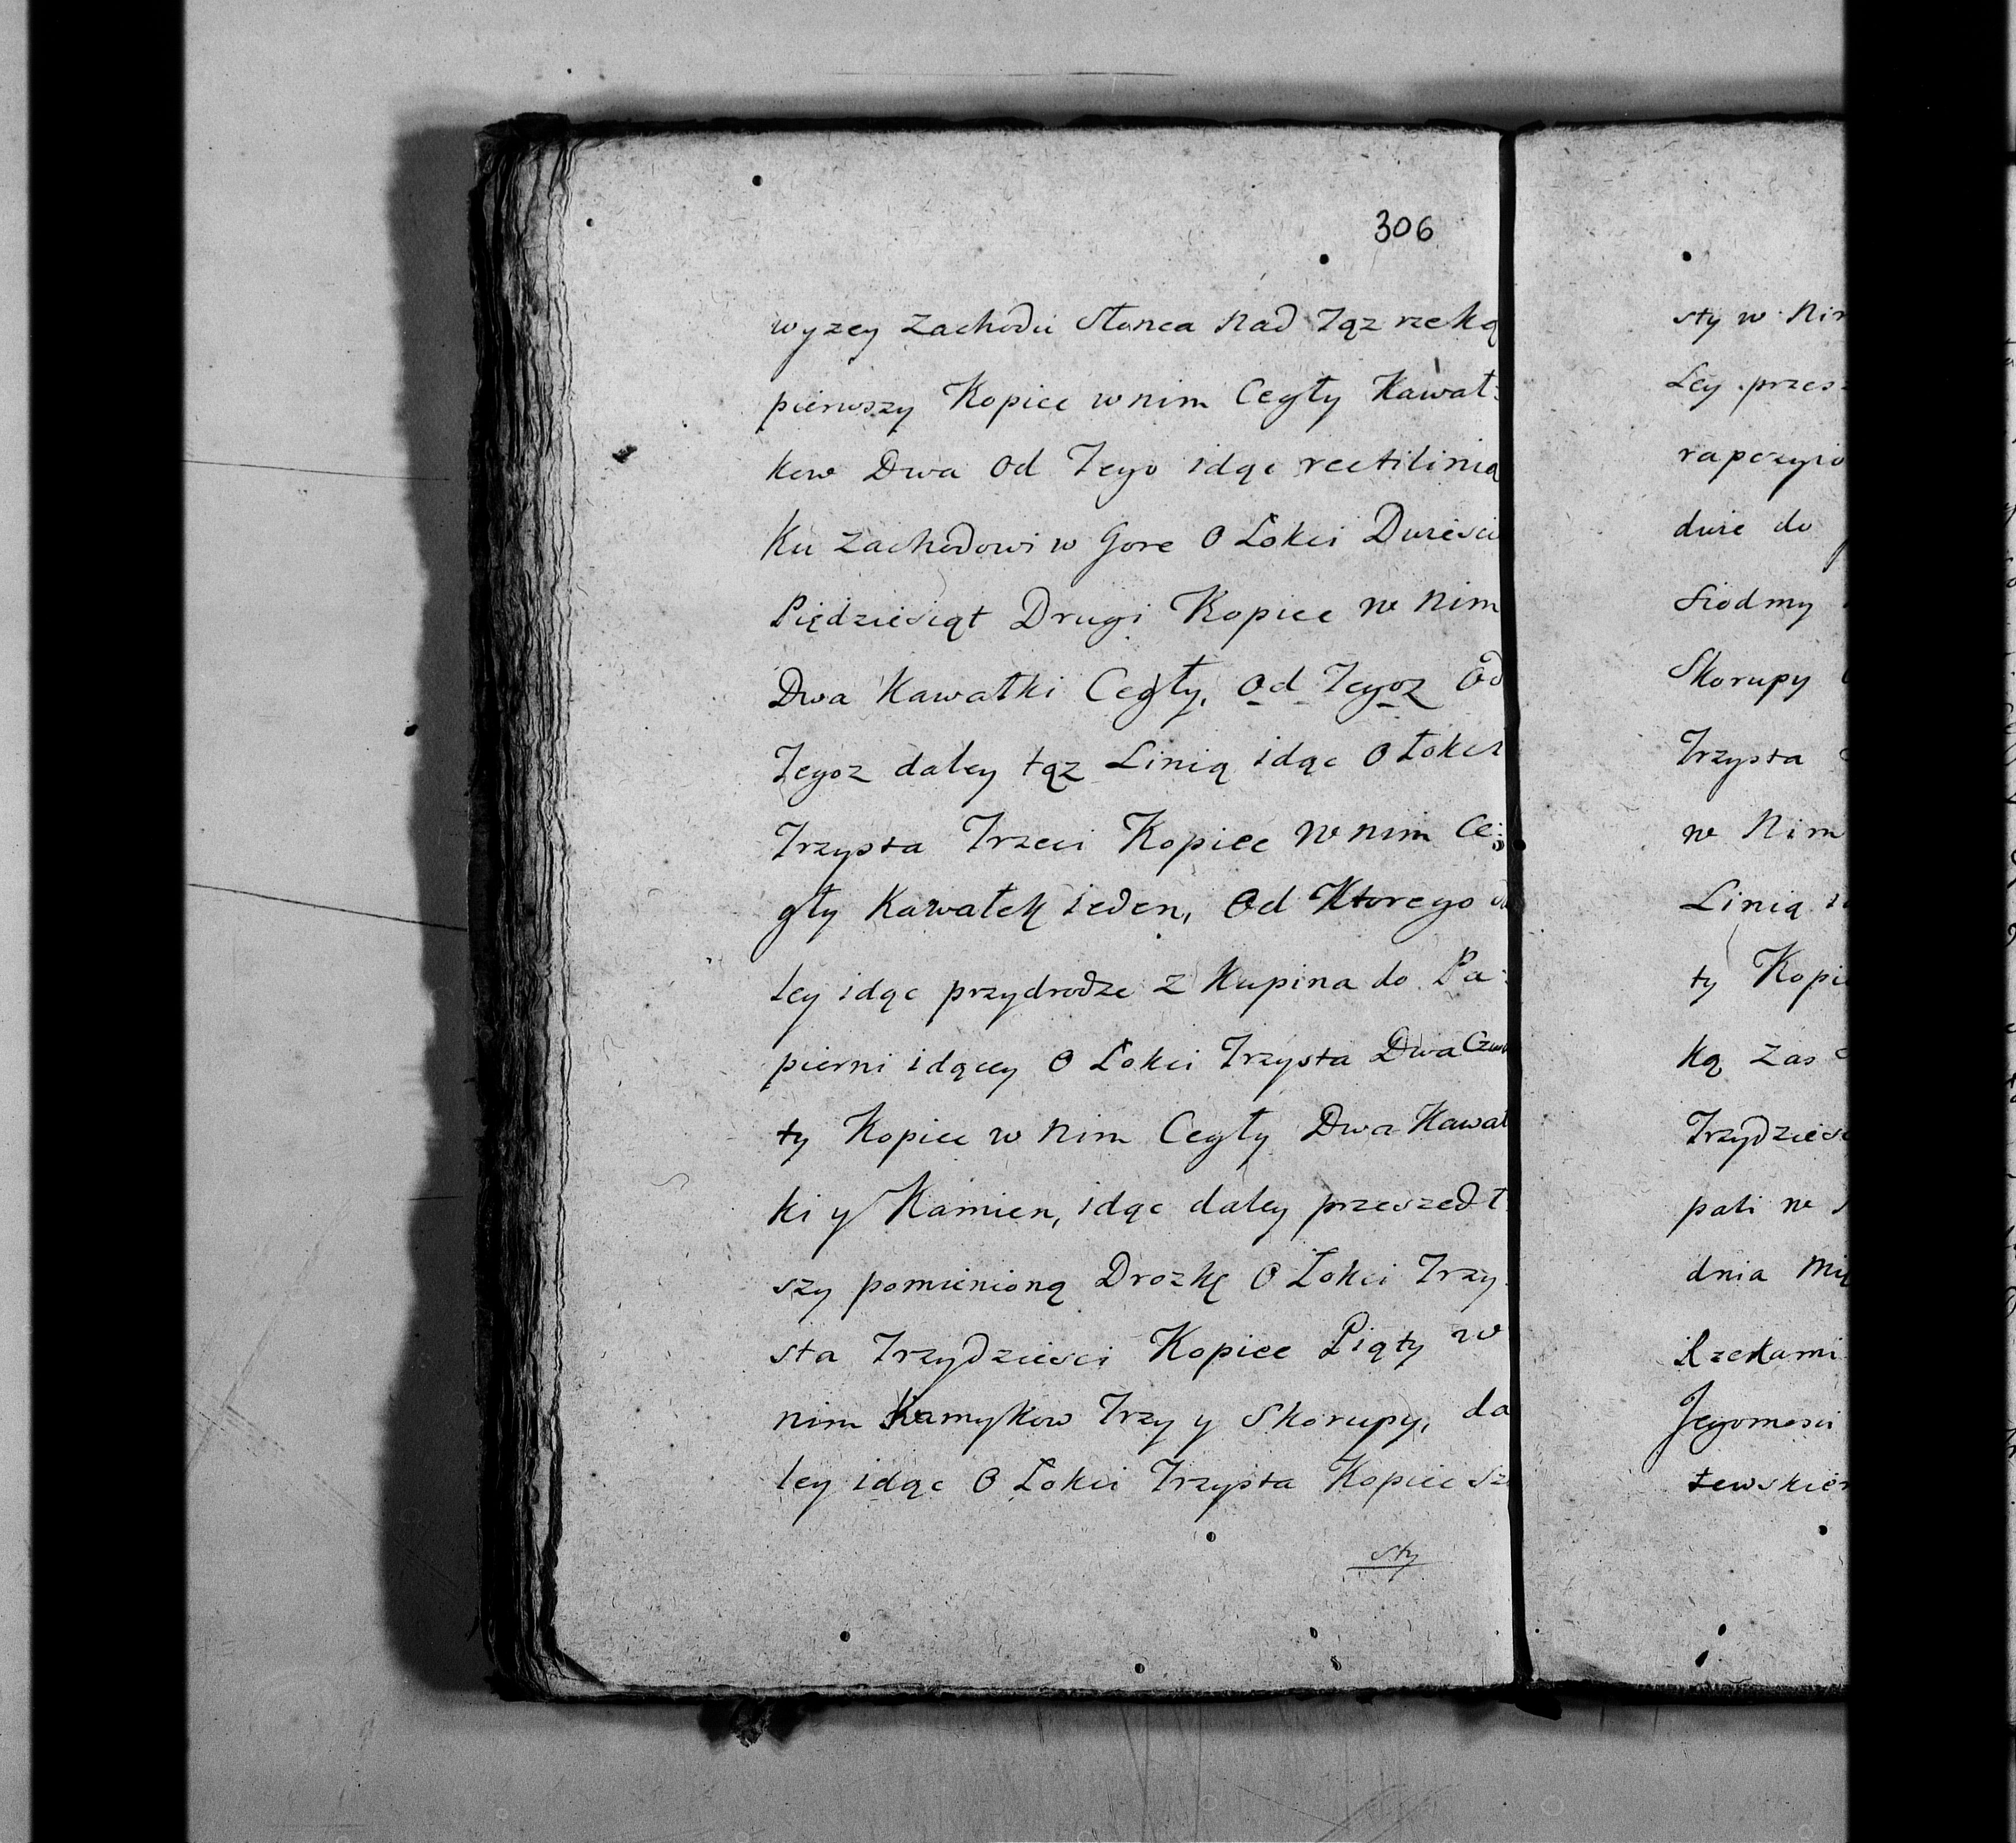 306
wyzey Zachodu Słonca Nad Tąz rzeką
pierwszy Kopiec w nim Cegły Kawał:
kow Dwa Od Tego idąc rectilinią
Ku Zachodowi w Gore O Łokci Dwiescie
Pięдziesiąt Drugi Kopiec w Nim
Dwa Kawałki Cegły, Od Tegoz Od
Tegoz daley tąz Linią idąc O Łokci
Trzysta Trzeci Kopiec w nim Ce:
gły Kawałek ieden, Od Ktorego da
ley idąc przydrodze z Kupina do Pa:
pierni idącey O Łokci Trzysta Dwa Czwar
ty Kopiec w Nim Cegły Dwa Kawał
ki y Kamien, idąc daley przeszedł
szy pomienioną Drozkę O Łokci Trzy
sta Trzydziesci Kopiec Piąty w
nim Kamykow Trzy y Skorupy, da
ley idąc O Łokci Trzysta Kopiec sz
sty
sty w Nim
Ley przes
rapczyio
dwie do
Siodmy
Skorupy
Trzysta
w Nim
Linią
ty Kopi
ką Zas
Trzydziesc
pali w
dnia
Rzekami
Jegomosci
tewskie